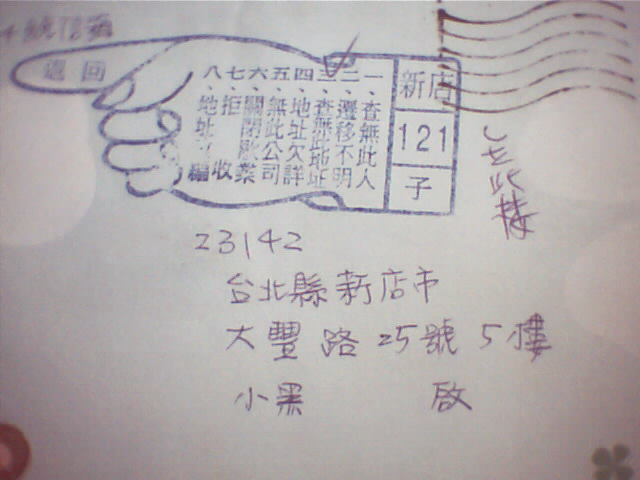 退回
一、查無此人
二、遷移不明
三、查無此地址
四、地址欠詳
五、無此公司
六、關閉歇業
七、拒收
八、地址
新店
121
子
無此樓
23142
台北縣新店市
大豐路25號5樓
小黑 啟